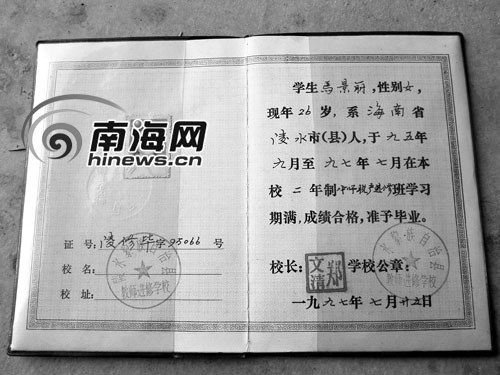 南海网
hinews.cn
证号:凌修毕字95066号
校名:
校址:
水黎族自治县
教师进修学校
学生马景丽,性别女,
现年26岁,系海南省
凌水市(县)人,于九五年
九月至九七年七月在本
校二年制中师脱产进修班学习
期满,成绩合格,准予毕业。
校长:郑文清 学校公章:
水黎族自治县
教师进修学校
一九九七年七月廿五日